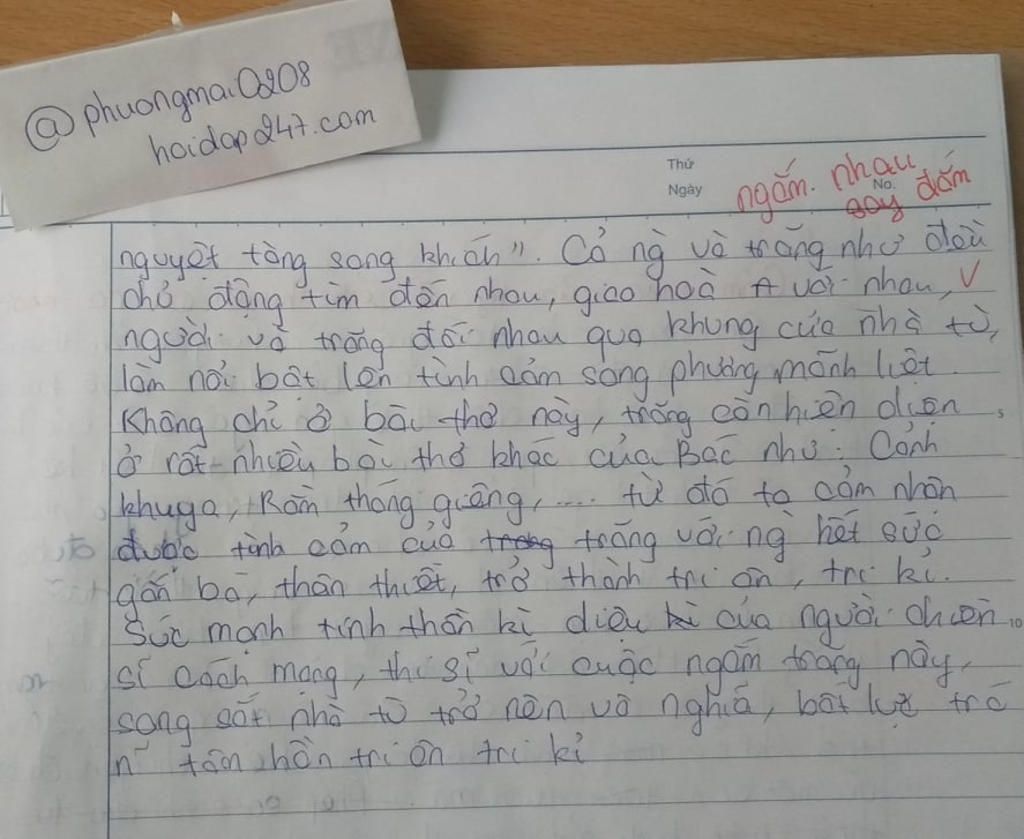 @phuongmai0208
hoidap247.com
Thứ
Ngày
No.
ngắm. nhau
say đắm
nguyệt tòng song khích". Cả ng và trăng như đều
chủ động tìm đến nhau, giao hoà với nhau, V
người và trăng đối nhau qua khung cửa nhà tù,
làm nổi bật lên tình cảm song phương mãnh liệt.
Không chỉ ở bài thơ này, trăng còn hiện diện 5
ở rất nhiều bài thơ khác của Bác như: Cảnh
khuya, Rằm tháng giêng, .... từ đó ta cảm nhận
được tình cảm của trăng với ng hết sức
gắn bó, thân thiết, trở thành tri ân, tri kỉ.
Sức mạnh tinh thần kì diệu của người chiến 10
sĩ cách mạng, thi sĩ với cuộc ngắm trăng này,
song sắt nhà tù trở nên vô nghĩa, bất lực trc
n~ tâm hồn tri ân tri kỉ